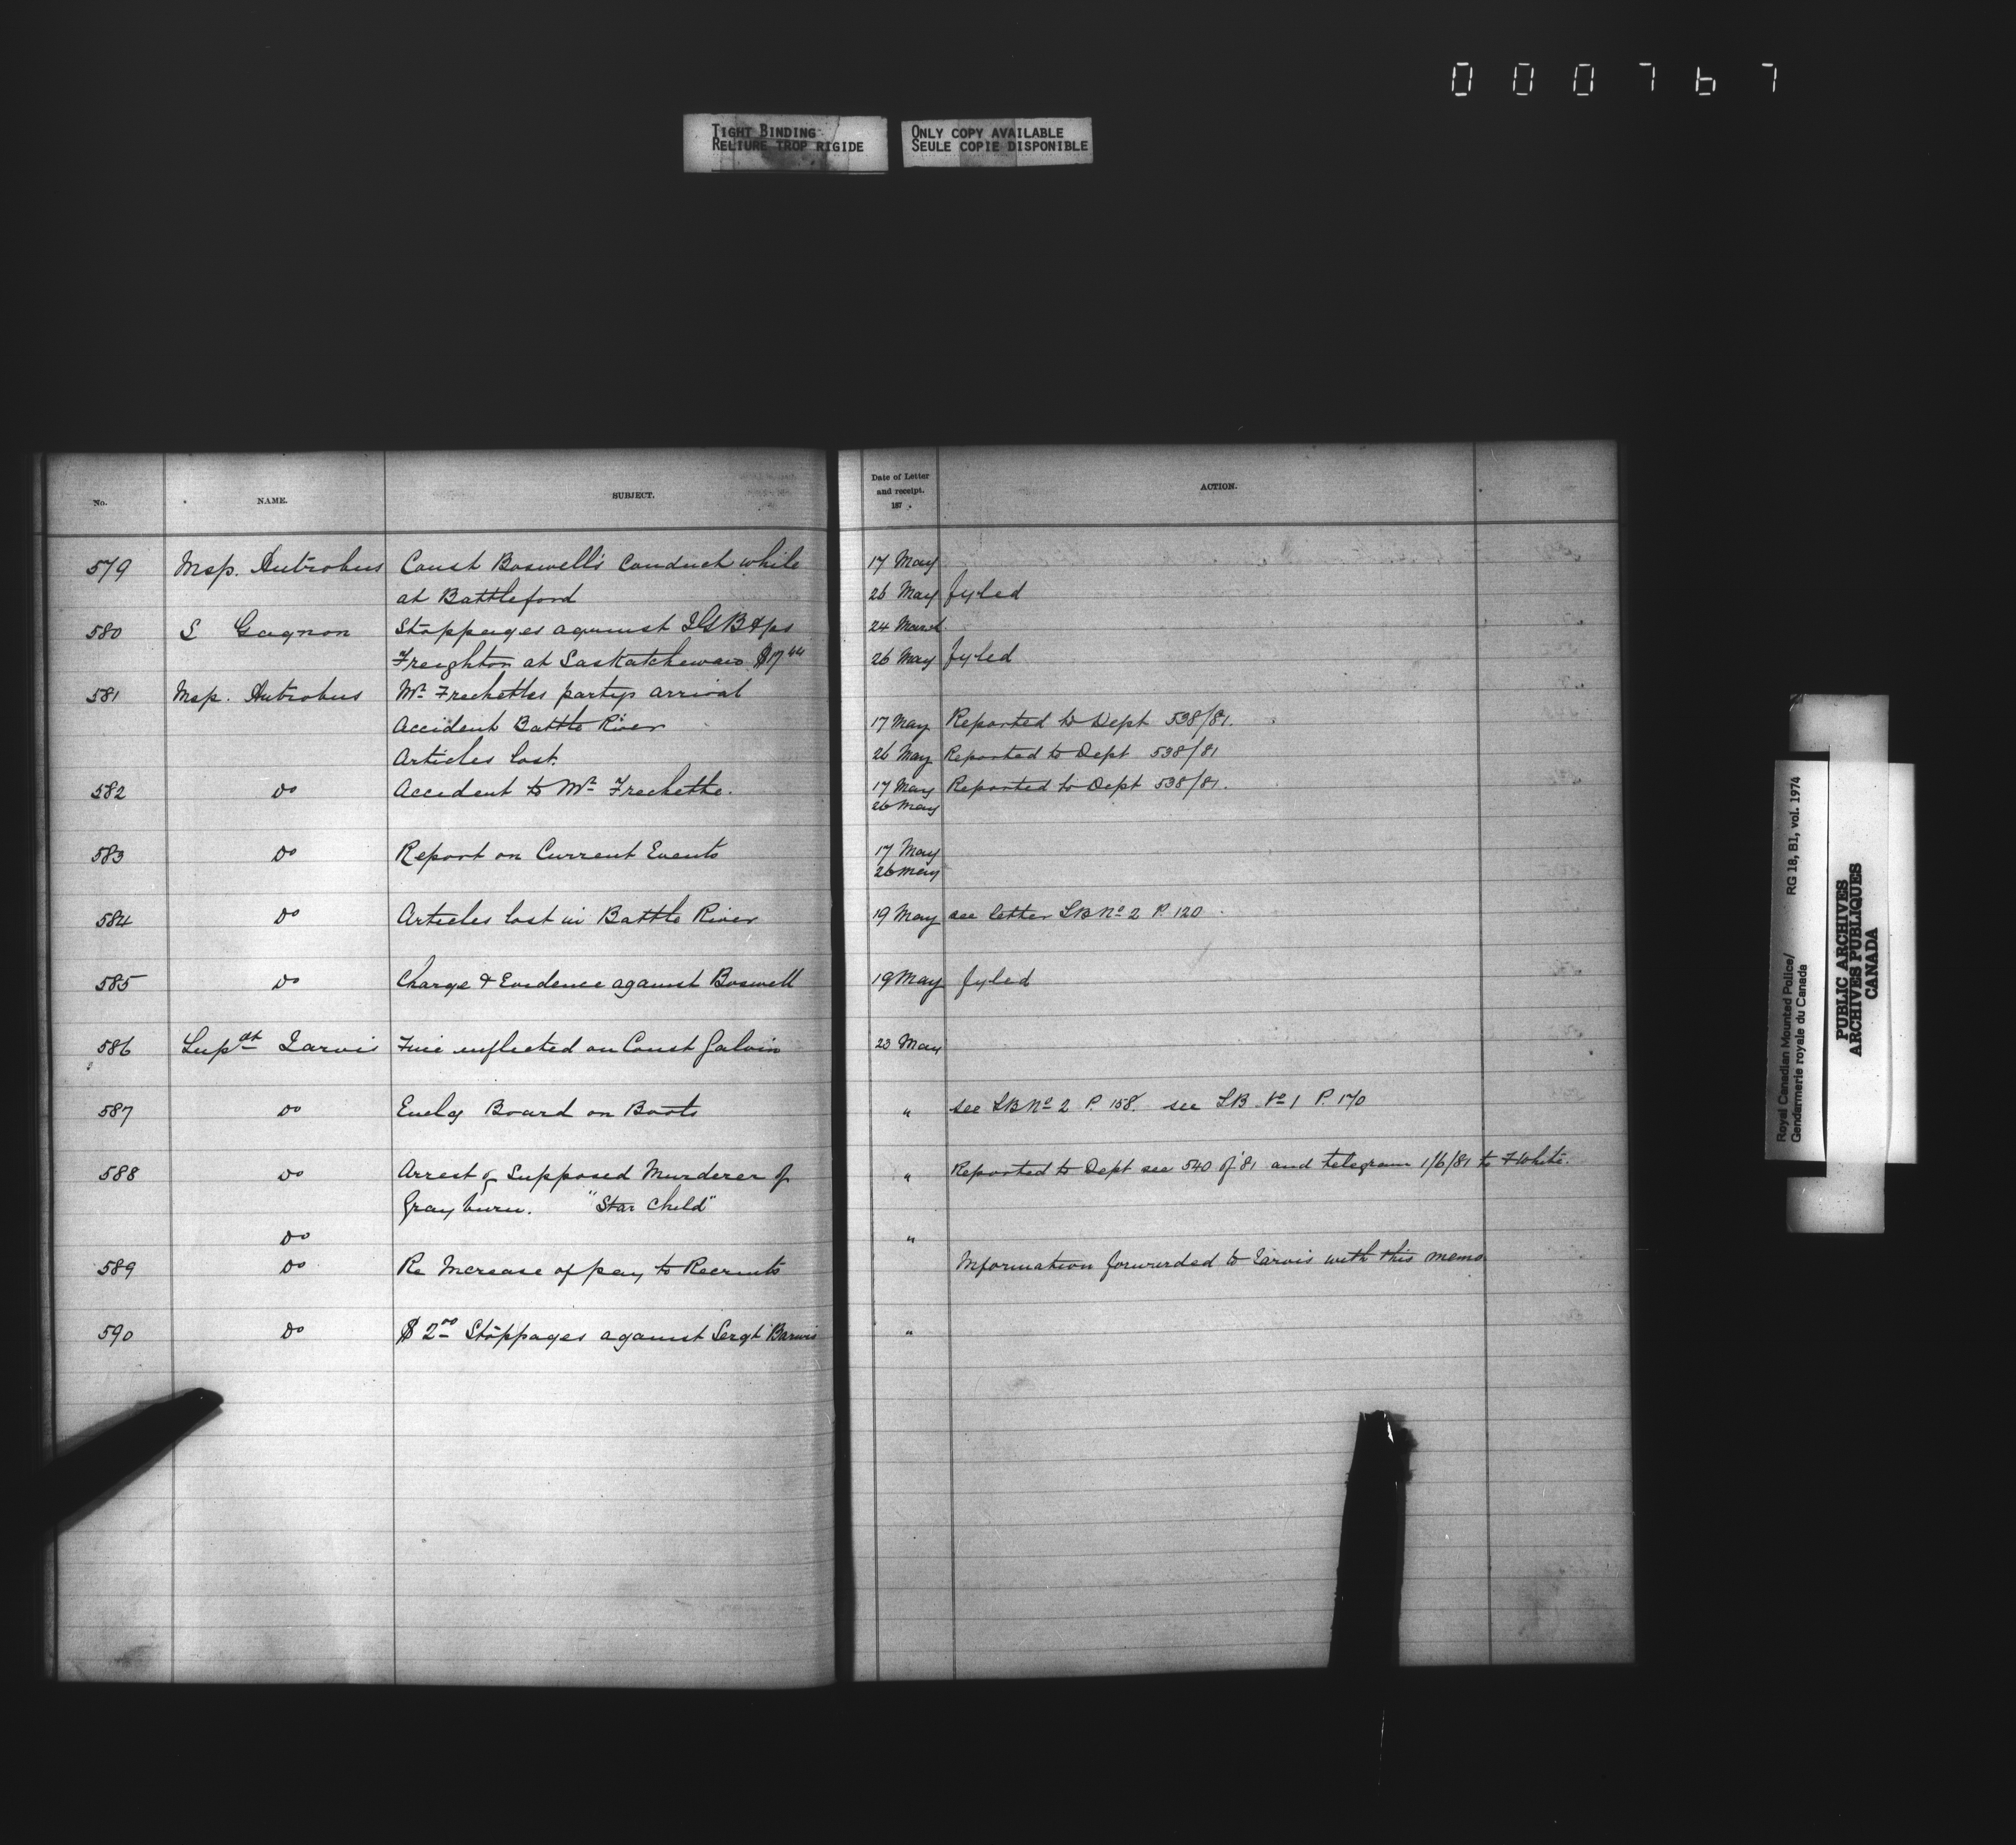 000767
TIGHT BINDING
RELIURE TROP RIGIDE
ONLY COPY AVAILABLE
SEULE COPIE DISPONIBLE
No. NAME. SUBJECT. Date of Letter and receipt. 187 . ACTION.
579 Insp. Antrobus Const Boswell's Conduct while 17 May
at Battleford 26 May fyled
580 S Gagnon Stoppages against 24 March
Freighton at Saskatchewan $17 44 26 May fyled
581 Insp. Antrobus Mr. Frechettes partys arrival
Accident Battle River 17 May Reported to Dept 538/81.
Articles lost. 26 May Reported to Dept 538/81
582 Do Accident to Mr. Frechette. 17 May Reported to Dept 538/81.
26 May
583 Do Report on Current Events 17 May
26 May
584 Do Articles lost in Battle River 19 May see letter LB No 2 P. 120
585 Do Charge & Evidence against Boswell 19 May fyled
586 Supdt Jarvis Fine inflicted on Const Galvin 23 May
587 Do Enclg Board on Boots " see LB No 2 P. 158. see LB No 1 P. 170
588 Do Arrest of Supposed Murderer of " Reported to Dept see 540 of '81 and telegram 1/6/81 to F White.
Grayburn. "Star Child"
Do "
589 Do Re Increase of pay to Recruits Information forwarded to Jarvis with this memo
590 Do $2 00 Stoppages against Sergt Barwis "
Royal Canadian Mounted Police/ RG 18, B1, vol. 1974
Gendarmerie royale du Canada
PUBLIC ARCHIVES
ARCHIVES PUBLIQUES
CANADA